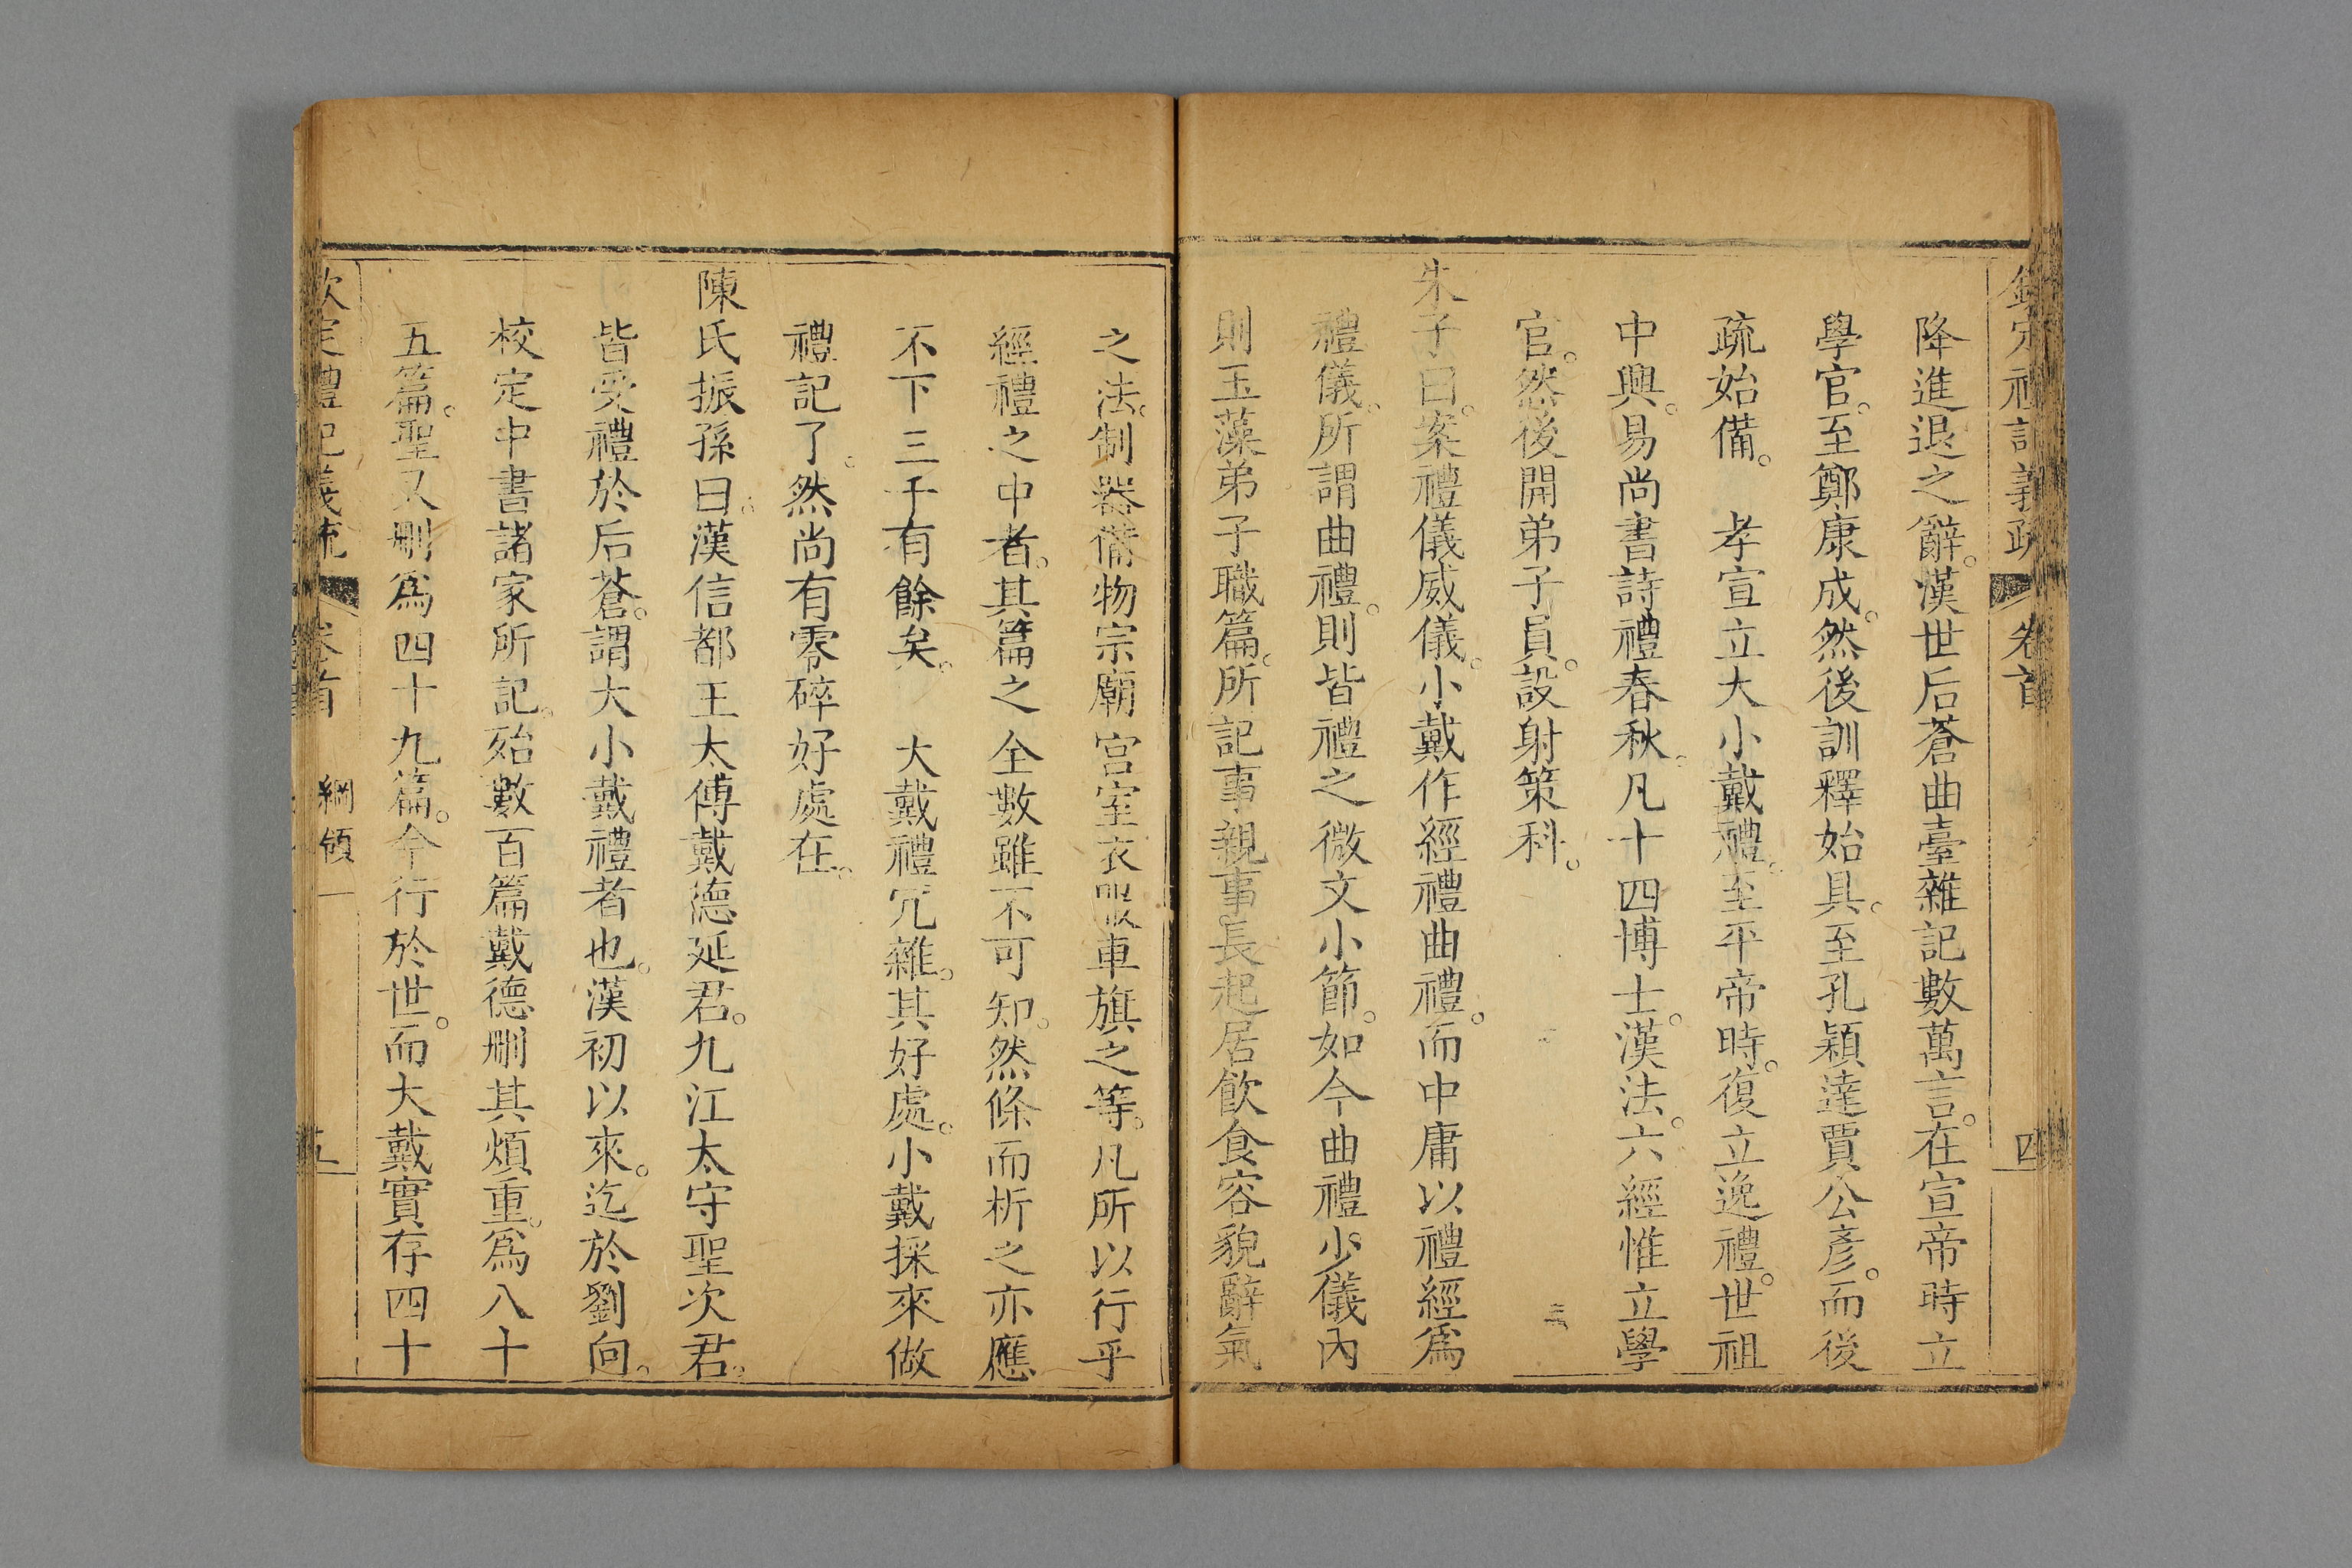 欽定禮記義疏 卷首 四
降進退之辭。漢世后蒼曲臺雜記數萬言。在宣帝時立
學官。至鄭康成。然後訓釋始具。至孔穎達賈公彥。而後
疏始備。 孝宣立大小戴禮。至平帝時。復立逸禮。世祖
中興。易尚書詩禮春秋。凡十四博士。漢法。六經惟立學
官。然後開弟子員。設射策科。
朱子曰。案禮儀威儀。小戴作經禮曲禮。而中庸以禮經爲
禮儀。所謂曲禮。則皆禮之微文小節。如今曲禮少儀內
則玉藻弟子職篇。所記事親事長起居飲食容貌辭氣
之法。制器備物宗廟宮室衣服車旗之等。凡所以行乎
經禮之中者。其篇之全數雖不可知。然條而析之亦應
不下三千有餘矣。 大戴禮冗雜。其好處。小戴採來做
禮記了。然尚有零碎好處在。
陳氏振孫曰。漢信都王太傅戴德延君。九江太守聖次君。
皆受禮於后蒼。謂大小戴禮者也。漢初以來。迄於劉向。
校定中書諸家所記。殆數百篇戴德刪其煩重。爲八十
五篇。聖又刪爲四十九篇。今行於世。而大戴實存四十
欽定禮記義疏 卷首 綱領一 五